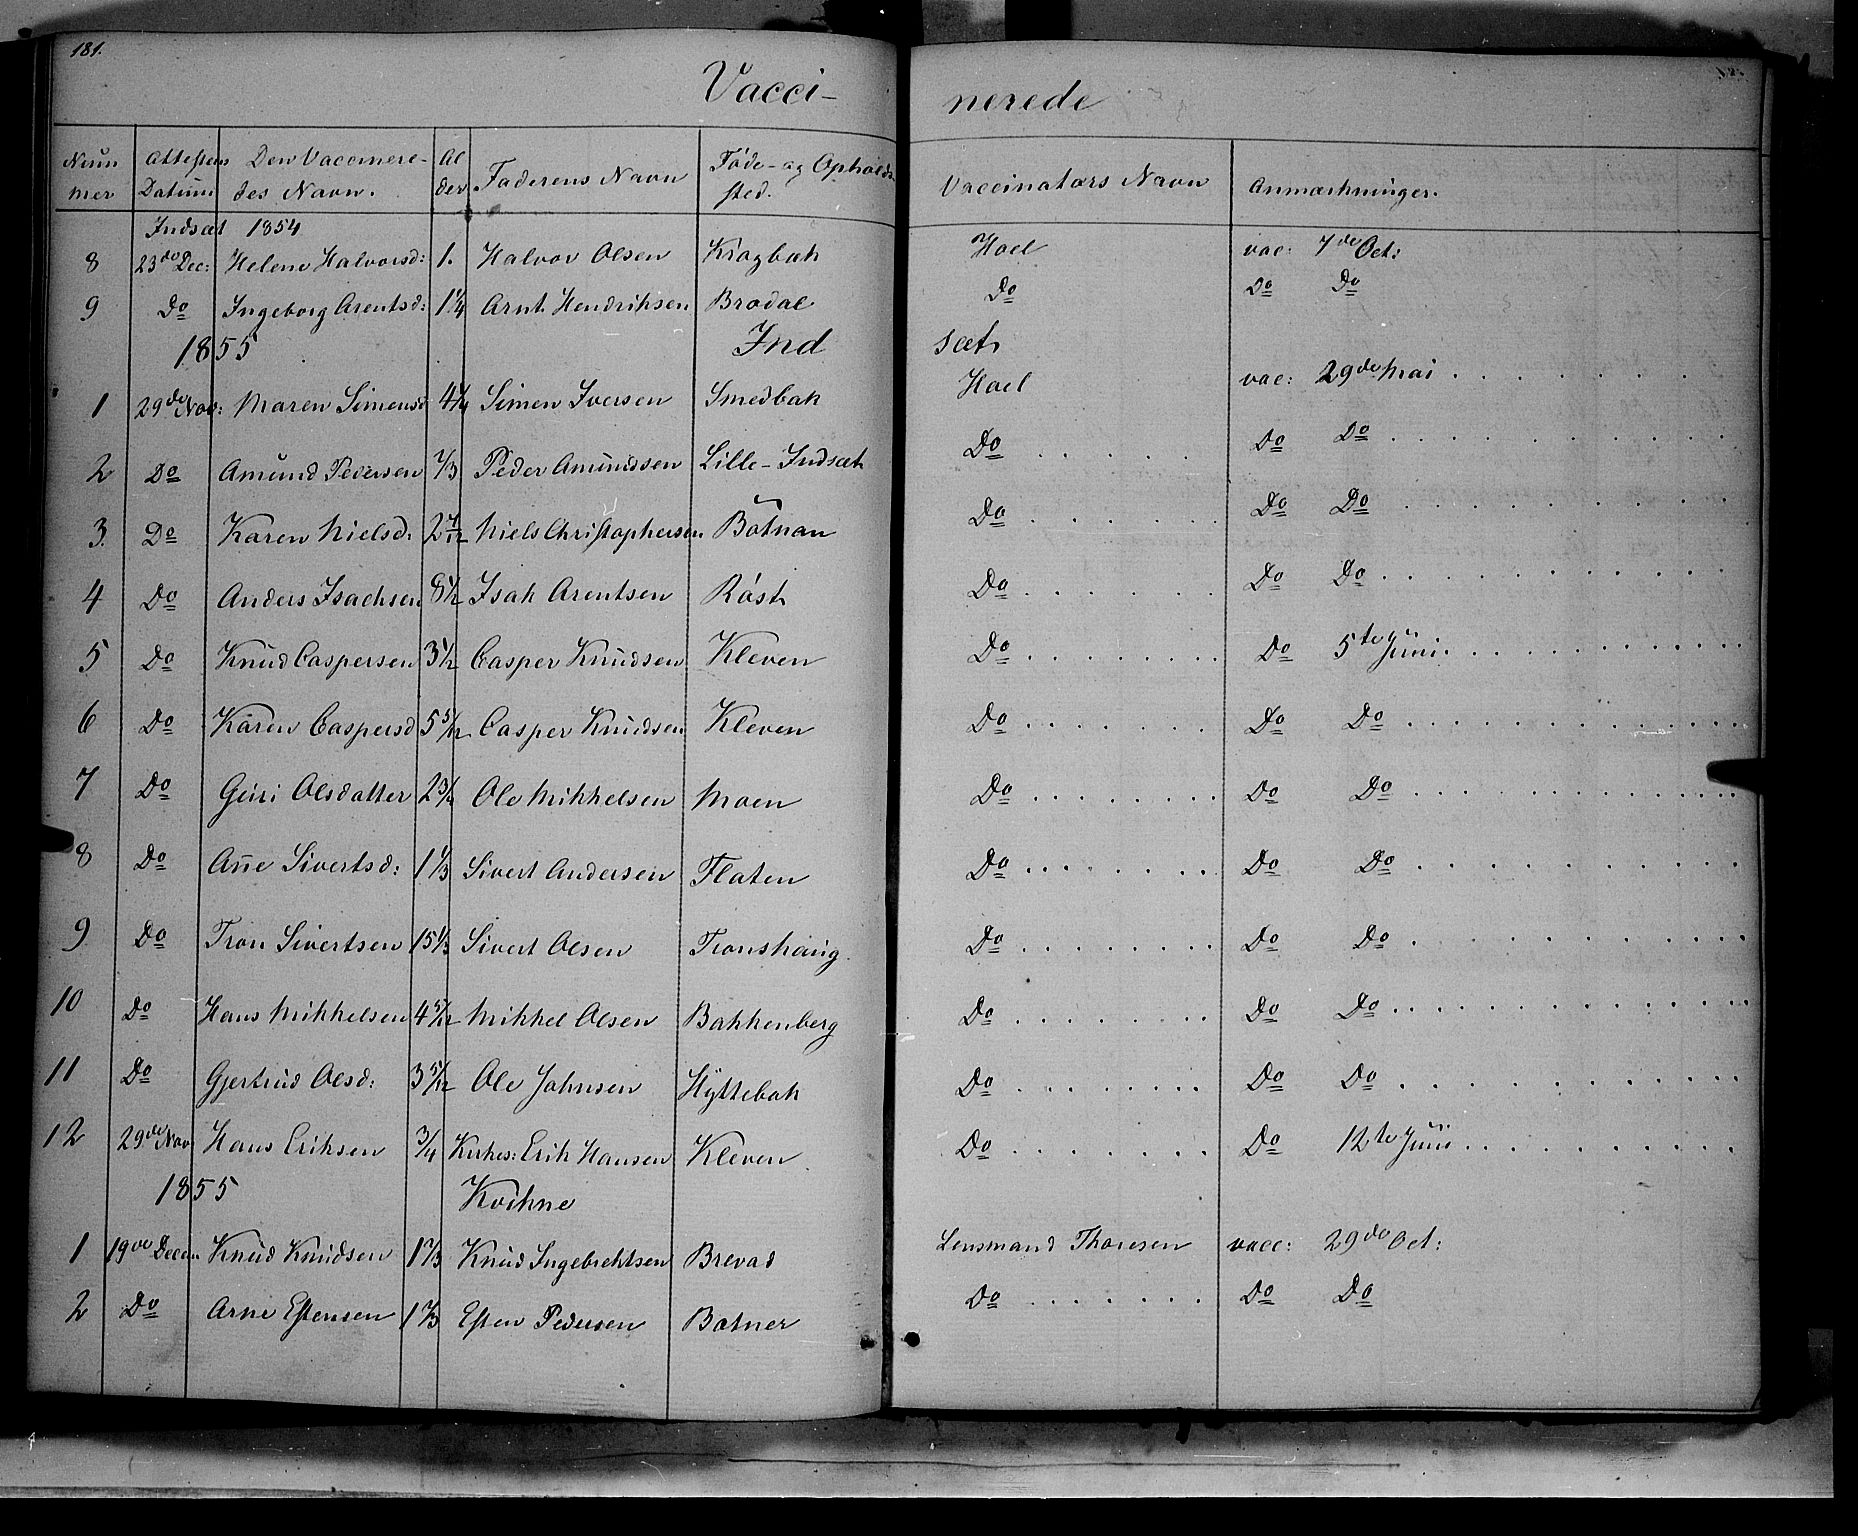 181.
Vacci- nerede
Num mer | Attestens Datum | Den Vaccinere- des Navn. | Al der | Faderens Navn | Føde- og Opholds sted. | Vaccinators Navn | Anmærkninger.
Indsæt 1854
8 | 23de Dec: | Helene Halvorsd: | 1. | Halvor Olsen | Kragbak | Hoel | vac: 7de Oct:
9 | Do | Ingeborg Arentsd: | 1 1/4 | Arnt Hendriksen | Brodal | Do | Do Do
1855 Ind sæt
1 | 29de Nov: | Maren Simensd | 4 1/4 | Simen Iversen | Smedbak | Hoel | vac: 29de Mai . . . . . . .
2 | Do | Amund Pedersen | 1/3 | Peder Amundsen | Lille-Indsæt | Do . . . . . | Do Do . . . . . . .
3. | Do | Karen Nielsd. | 2 7/12 | Niels Christophersen | Botnan | Do . . . . . | Do Do . . . . . . .
4 | Do | Anders Isachsen | 8 1/2 | Isak Arentsen | Røst | Do . . . . . | Do Do . . . . . . .
5 | Do | Knud Caspersen | 3 1/2 | Casper Knudsen | Kleven | Do . . . . . | Do 5te Juni . . . . . . .
6 | Do | Karen Caspersd | 5 5/12 | Casper Knudsen | Kleven | Do . . . . . | Do Do . . . . . . .
7 | Do | Guri Olsdatter | 2 3/4 | Ole Mikkelsen | Moen | Do . . . . . | Do Do . . . . . . .
8 | Do | Ane Sivertsd: | 1 1/3 | Sivert Andersen | Flaten | Do . . . . . | Do Do . . . . . . .
9 | Do | Tron Sivertsen | 15 1/3 | Sivert Olsen | Tronshaug | Do . . . . . | Do Do . . . . . . .
10 | Do | Hans Mikkelsen | 4 5/12 | Mikkel Olsen | Bakkenberg | Do . . . . . | Do Do . . . . . . .
11 | Do | Gjertrud Olsd: | 3 5/12 | Ole Johnsen | Hyttebak | Do . . . . . | Do Do . . . . . . .
12 | 29de Nov | Hans Eriksen | 3/4 | Kirkes: Erik Hansen | Kleven | Do . . . . . | Do 12te Juni . . . . . . .
1855 Kvikne
1 | 19de Decem | Knud Knudsen | 1 2/3 | Knud Ingebrektsen | Brevad | Lensmand Thoresen | vacc: 29de Oct:
2 | Do | Arne Estensen | 1 2/3 | Esten Pedersen | Botner | Do . . . . . | Do Do